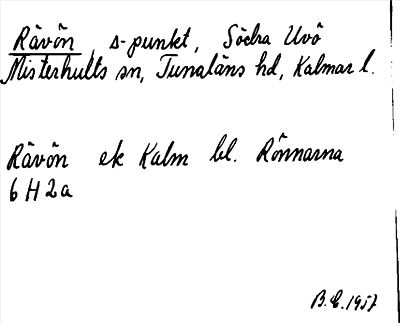 Rävön, s-punkt, Södra Uvö
Misterhults sn, Tunaläns hd, Kalmar l.
Rävön ek Kalm bl. Rönnarna
6 H 2 a
B.E. 1957